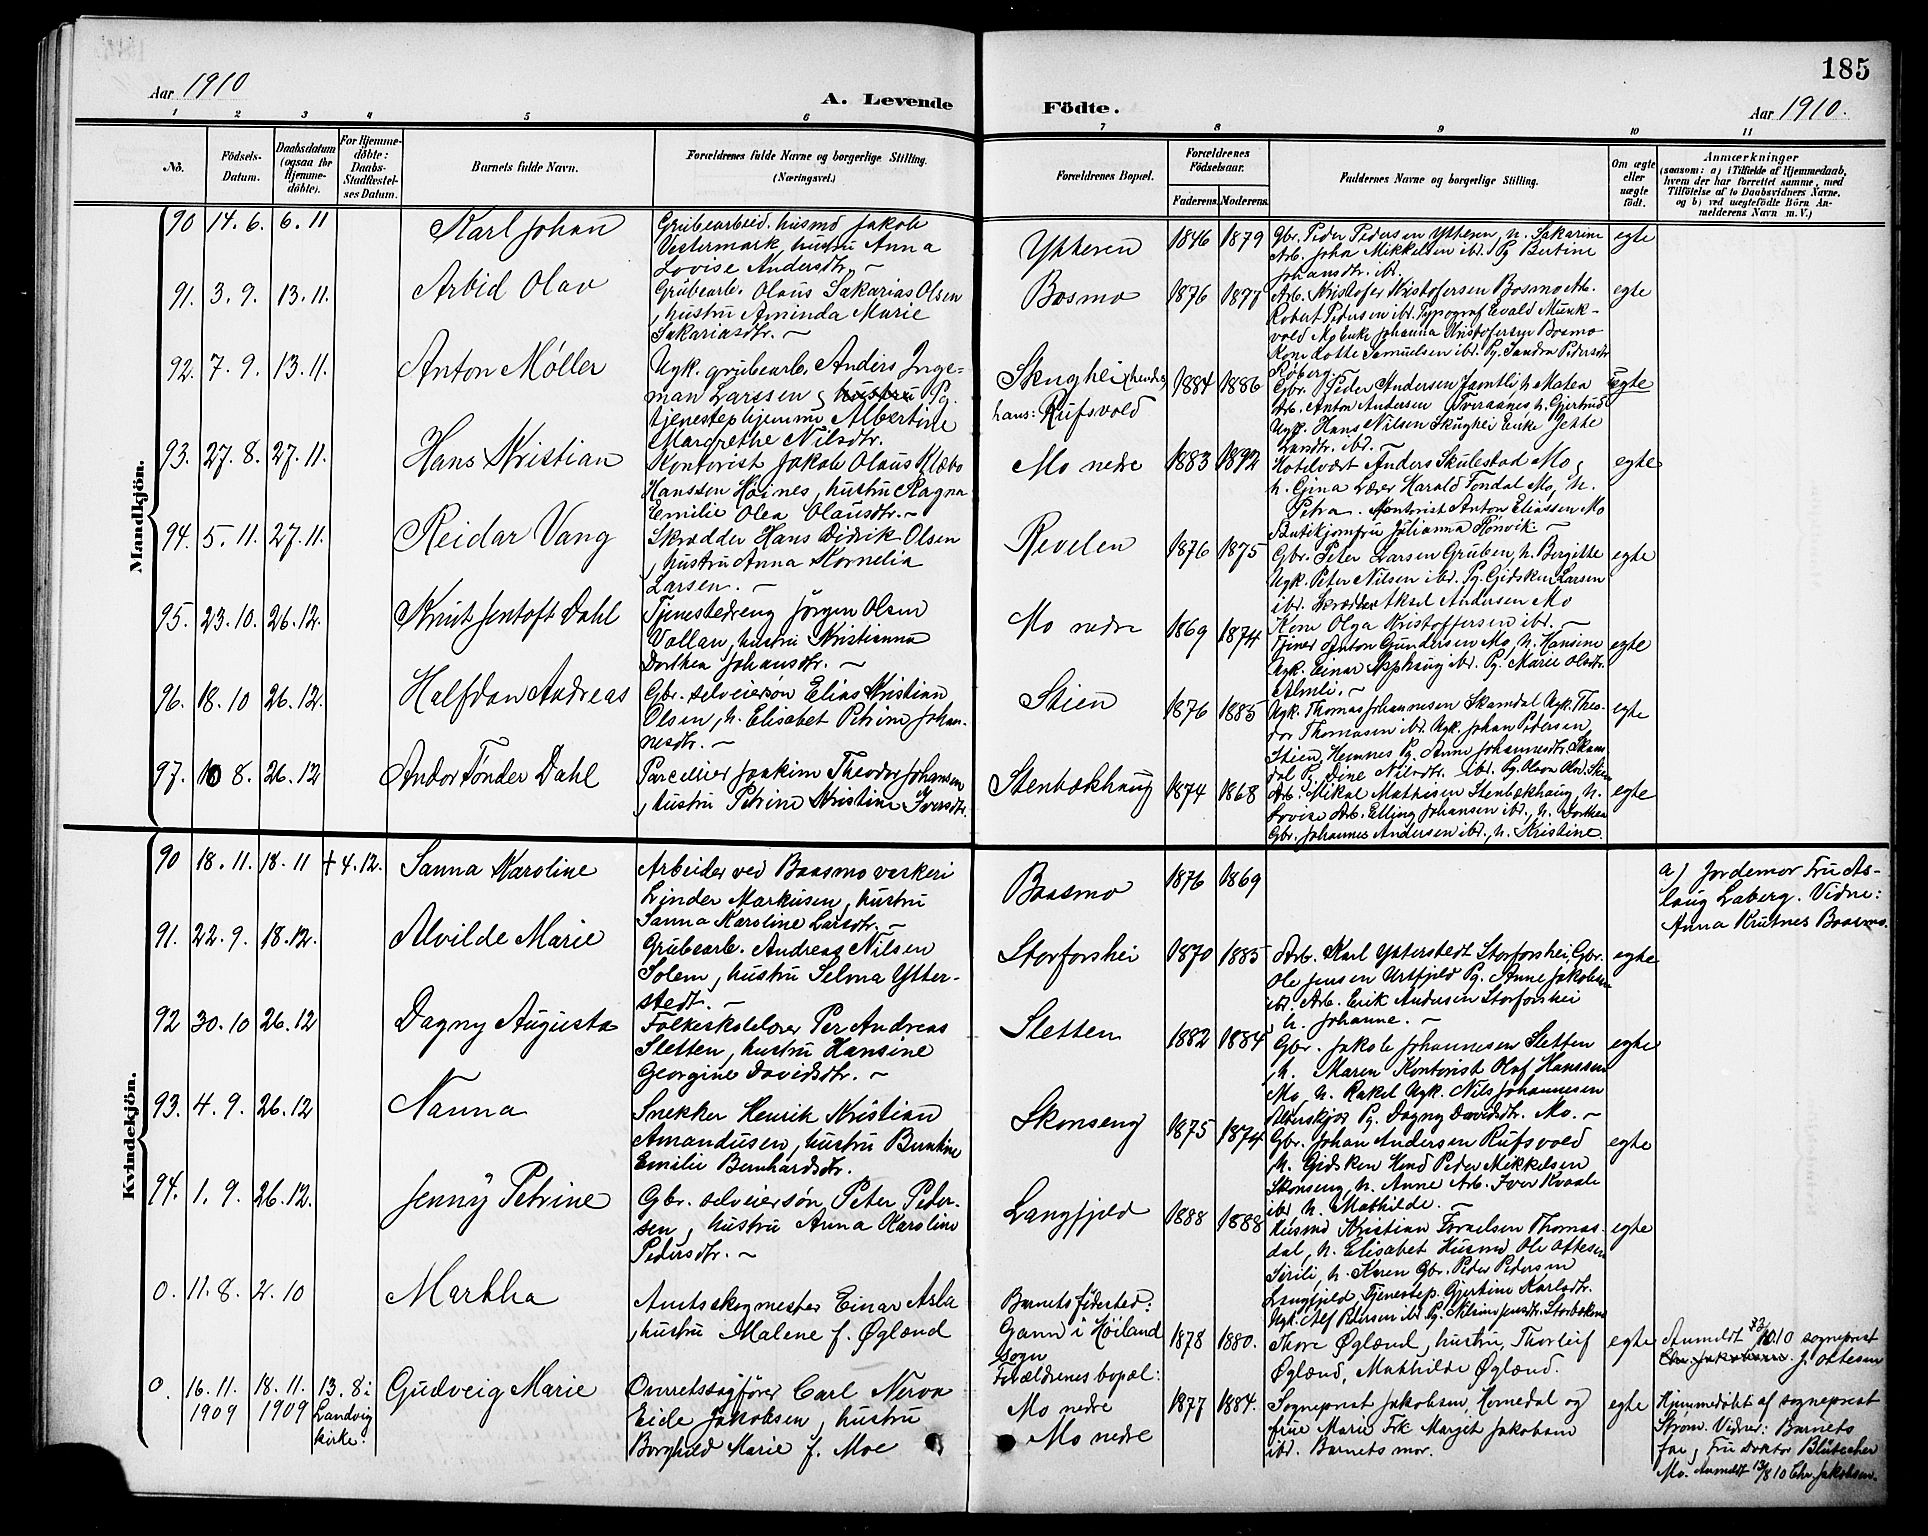 185
Aar 1910
A. Levende
Födte.
Aar 1910.
1 2 3 4 5 6 7 8 9 10 11
No.
Födsels-
Datum.
Daabsdatum
(ogsaa for
Hjemme-
döbte).
For Hjemme-
döbte:
Daabs-
Stadfæstel-
ses Datum.
Barnets fulde Navn.
Forældrenes fulde Navne og borgerlige Stilling.
(Næringsvei.)
Forældrenes Bopæl.
Forældrenes
Födselsaar.
Faderens. Moderens.
Faddernes Navne og borgerlige Stilling.
Om ægte
eller
uægte
födt.
Anmærkninger
(saasom: a) i Tilfælde af Hjemmedaab,
hvem der har forrettet samme, med
Tilföielse af to Daabsvidners Navne,
og b) ved uægtefödte Börn An-
melderens Navn m. V.)
Mandkjön.
90 14. 6. 6. 11 Karl Johan
Grubearbeid. husmd Jakob
Vestermark, hustru Anna
Lovise Andersdtr. —
Ytteren 1846 1879
Gbr. Peder Pedersen Ytteren, h. Sakarine
Arb. Johan Mikkelsen ibd. Pg Bertine
Johansdtr. ibd.
egte
91. 3. 9. 13. 11. Arbid Olav
Grubearb. Olaus Sakarias Olsen
, hustru Aminda Marie
Sakariasdtr. —
Bosmo 1876 1877
Arb. Kristofer Kristofersen Bosmo Arb.
Robert Pedersen ibd. Typograf Evald Munk-
vold Mo Enke Johanna Kristofersen Bosmo
Kone Lotte Samuelsen ibd. Pg. Sandra Pedersdtr
Røberg.
egte
92. 7. 9. 13. 11. Anton Møller
Ugk. grubearb. Anders Inge-
man Larssen, hustru Pg.
tjenestep hjemme Albertine
Margrethe Nilsdtr.
Skughei (hendes)
hans: Rufsvold
1884 1886
Gbr. Peder Andersen Jamtli h. Matea
Arb. Anton Andersen Tveraanes h. Gjertrud
Ugk. Hans Nilsen Skughei Enke Jette
ibd. —
uegte
93. 27. 8. 27. 11. Hans Kristian
Kontorist Jakob Olaus Klæbo
Hanssen Høines, hustru Ragna
Emilie Olea Olausdtr. —
Mo nedre 1883 1892
Hotelvært Anders Skulestad Mo,
h. Gina Lærer Harald Fondal Mo, h.
Petra. Kontorist Anton Eliassen Mo
Butikjomfru Julianna Rønvik. —
egte
94. 5. 11. 27. 11. Reidar Vang
Skrædder Hans Didrik Olsen
, hustru Anna Kornelia
Larsen. —
Revelen 1876 1875
Gbr. Peter Larsen Gruben, h. Bergitte
Ugk. Peter Nilsen ibd. Pg. Gidsken Larsen
ibd. Skrædder Aksel Andersen Mo
Kone Olga Kristoffersen ibd. —
egte
95. 23. 10. 26. 12. Knut Jentoft Dahl
Tjenestedreng Jørgen Olsen
Vollan, hustru Kristianna
Dorthea Johansdtr. —
Mo nedre 1869 1874
Tjener Anton Gundersen Mo, h. Hansine
Ugk. Einar ibd. Pg. Marie Olsdtr.
Almli. —
egte
96. 18. 10 26. 12. Halfdan Andreas
Gbr. selveiersøn Elias Kristian
Olsen, h. Elisabet Petrine Johan-
nesdtr. —
Stien 1876 1885
Ugk. Thomas Johannesen Skamdal Ugk. Theo-
dor Thomasen ibd. Ugk. Johan Pedersen
Stien, Hemnes Pg. Anne Johannesdtr. Skam
dal Pg. Dine Nilsdtr. ibd. Pg. Olava Olsd. Stien
egte
97. 10 8. 26. 12 Andor Tønder Dahl
Parcellier Joakim Theodor Johansen
, hustru Petrine Kristine Iversdtr.
Stenbækhaug 1874 1868
Arb. Mikal Mathisen Stenbækhaug, h.
Lovise Arb. Elling Johansen ibd., h. Dorthea
Gbr. Johannes Andersen ibd., h. Kristine
egte
Kvindekjön.
90 18. 11. 18. 11 † 4. 12. Sanna Karoline
Arbeider ved Baasmo verkeri
Linder Markusen, hustru
Sanna Karoline Larsdtr. —
Baasmo 1876 1869
a) Jordemor Fru As-
laug Laberg. Vidne:
Anna Krutnes Baasmo.
91. 22. 9. 18. 12. Alvilde Marie
Grubearb. Andreas Nilsen
Solem, hustru Selma Ytter-
stedt. —
Storforshei 1870 1885
Arb. Karl Ytterstedt Storforshei, Gbr.
Ole Jensen Urtfjeld Pg. Anne Jakobsen
ibd. Arb. Erik Andersen Storforshei
, h. Johanne. —
egte
92 30. 10 26. 12 Dagny Augusta
Folkeskolelærer Per Andreas
Sletten, hustru Hansine
Georgine Davidsdtr. —
Sletten 1882 1884
Gbr. Jakob Johannesen Sletten
, h. Maren Kontorist Olaf Hanssen
Mo, h. Rakel Ugk. Nils Johannesen
Pg. Dagny Davidsdtr. Mo. —
egte
93. 4. 9. 26. 12 Nanna
Snekker Henrik Kristian
Amandusen, hustru Berntine
Emilie Bernhardsdtr.
Skonseng 1875 1874
Gbr. Johan Andersen Rufsvold
h. Gidsken Hmd Peder Mikkelsen
Skonseng, h. Anne Arb. Iver Kvaale
ibd h. Mathilde. —
egte
94. 1. 9. 26. 12. Jenny Petrine
Gbr. selveiersøn Peter Peder-
sen, hustru Anna Karoline
Pedersdtr. —
Langfjeld 1888 1888
Husmd Kristian Tornelsen Thomas-
dal, h. Elisabet Husmd Ole Ottesen
h. Karen Gbr. Peder Pedersen
Langfjeld Tjenestep. Gjertine Karlsdtr.
Ugk. Alf Pedersen ibd Pg. Jensdtr.
egte
0. 11. 8. 2. 10 Martha
Amtsskogmester Einar Asla
, hustru Malene f. Øglænd
Barnets fødested:
Gann i Høiland
sogn
Forældrenes bopæl:
Mo nedre
1878 1880.
Thore Øglænd, hustru, Thorleif
Øglænd, Mathilde Øglænd.
egte
Anmeldt 23/10.10 sogneprest
Chr. Jakobsen. J. Ottesen
0. 16. 11. 1909 18. 11. 1909 13. 8 i
Landvig
kirke.
Gudveig Marie
Overretssagfører Carl Nerva
Eide Jakobsen, hustru
Borghild Marie f. Moe
Mo nedre 1877 1884.
Sogneprest Jakobsen, Homedal og
frue Marie Frk Margit Jakobsen
ibd. Barnets mor.
egte
Hjemmedøbt af sogneprest
Strøm. Vidner: Barnets
far, Fru Doktor Blütecher
Mo. Anmeldt 13/8 10 Chr. Jakobsen.